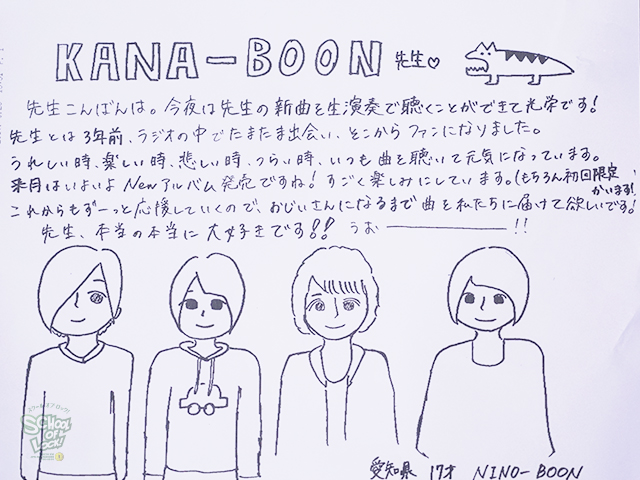 KANA-BOON 先生♡
先生こんばんは。今夜は先生の新曲を生演奏で聴くことができて光栄です!
先生とは3年前、ラジオの中でたまたま出会い、そこからファンになりました。
うれしい時、楽しい時、悲しい時、つらい時、いつも曲を聴いて元気になっています。
来月はいよいよNewアルバム発売ですね!すごく楽しみにしています。(もちろん初回限定、かいます!)
これからもずーっと応援していくので、おじいさんになるまで曲を私たちに届けて欲しいです!
先生、本当の本当に大好きです!! うお――――!!
スクールオブロック!
SCHOOL
OF
LOCK!
愛知県 17才 NINO-BOON